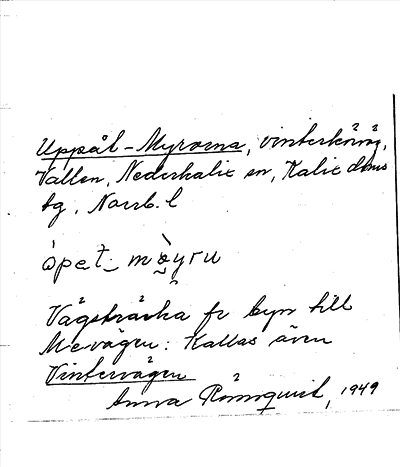 Uppåt-Myrorna, vinterköväg,
Vallen, Nederkalix sn, Kalix doms
tg, Norrb. l
Vägsträcka fr byn till
Mevägen: Kallas även
Vintervägen
Anna Rönnquist, 1949